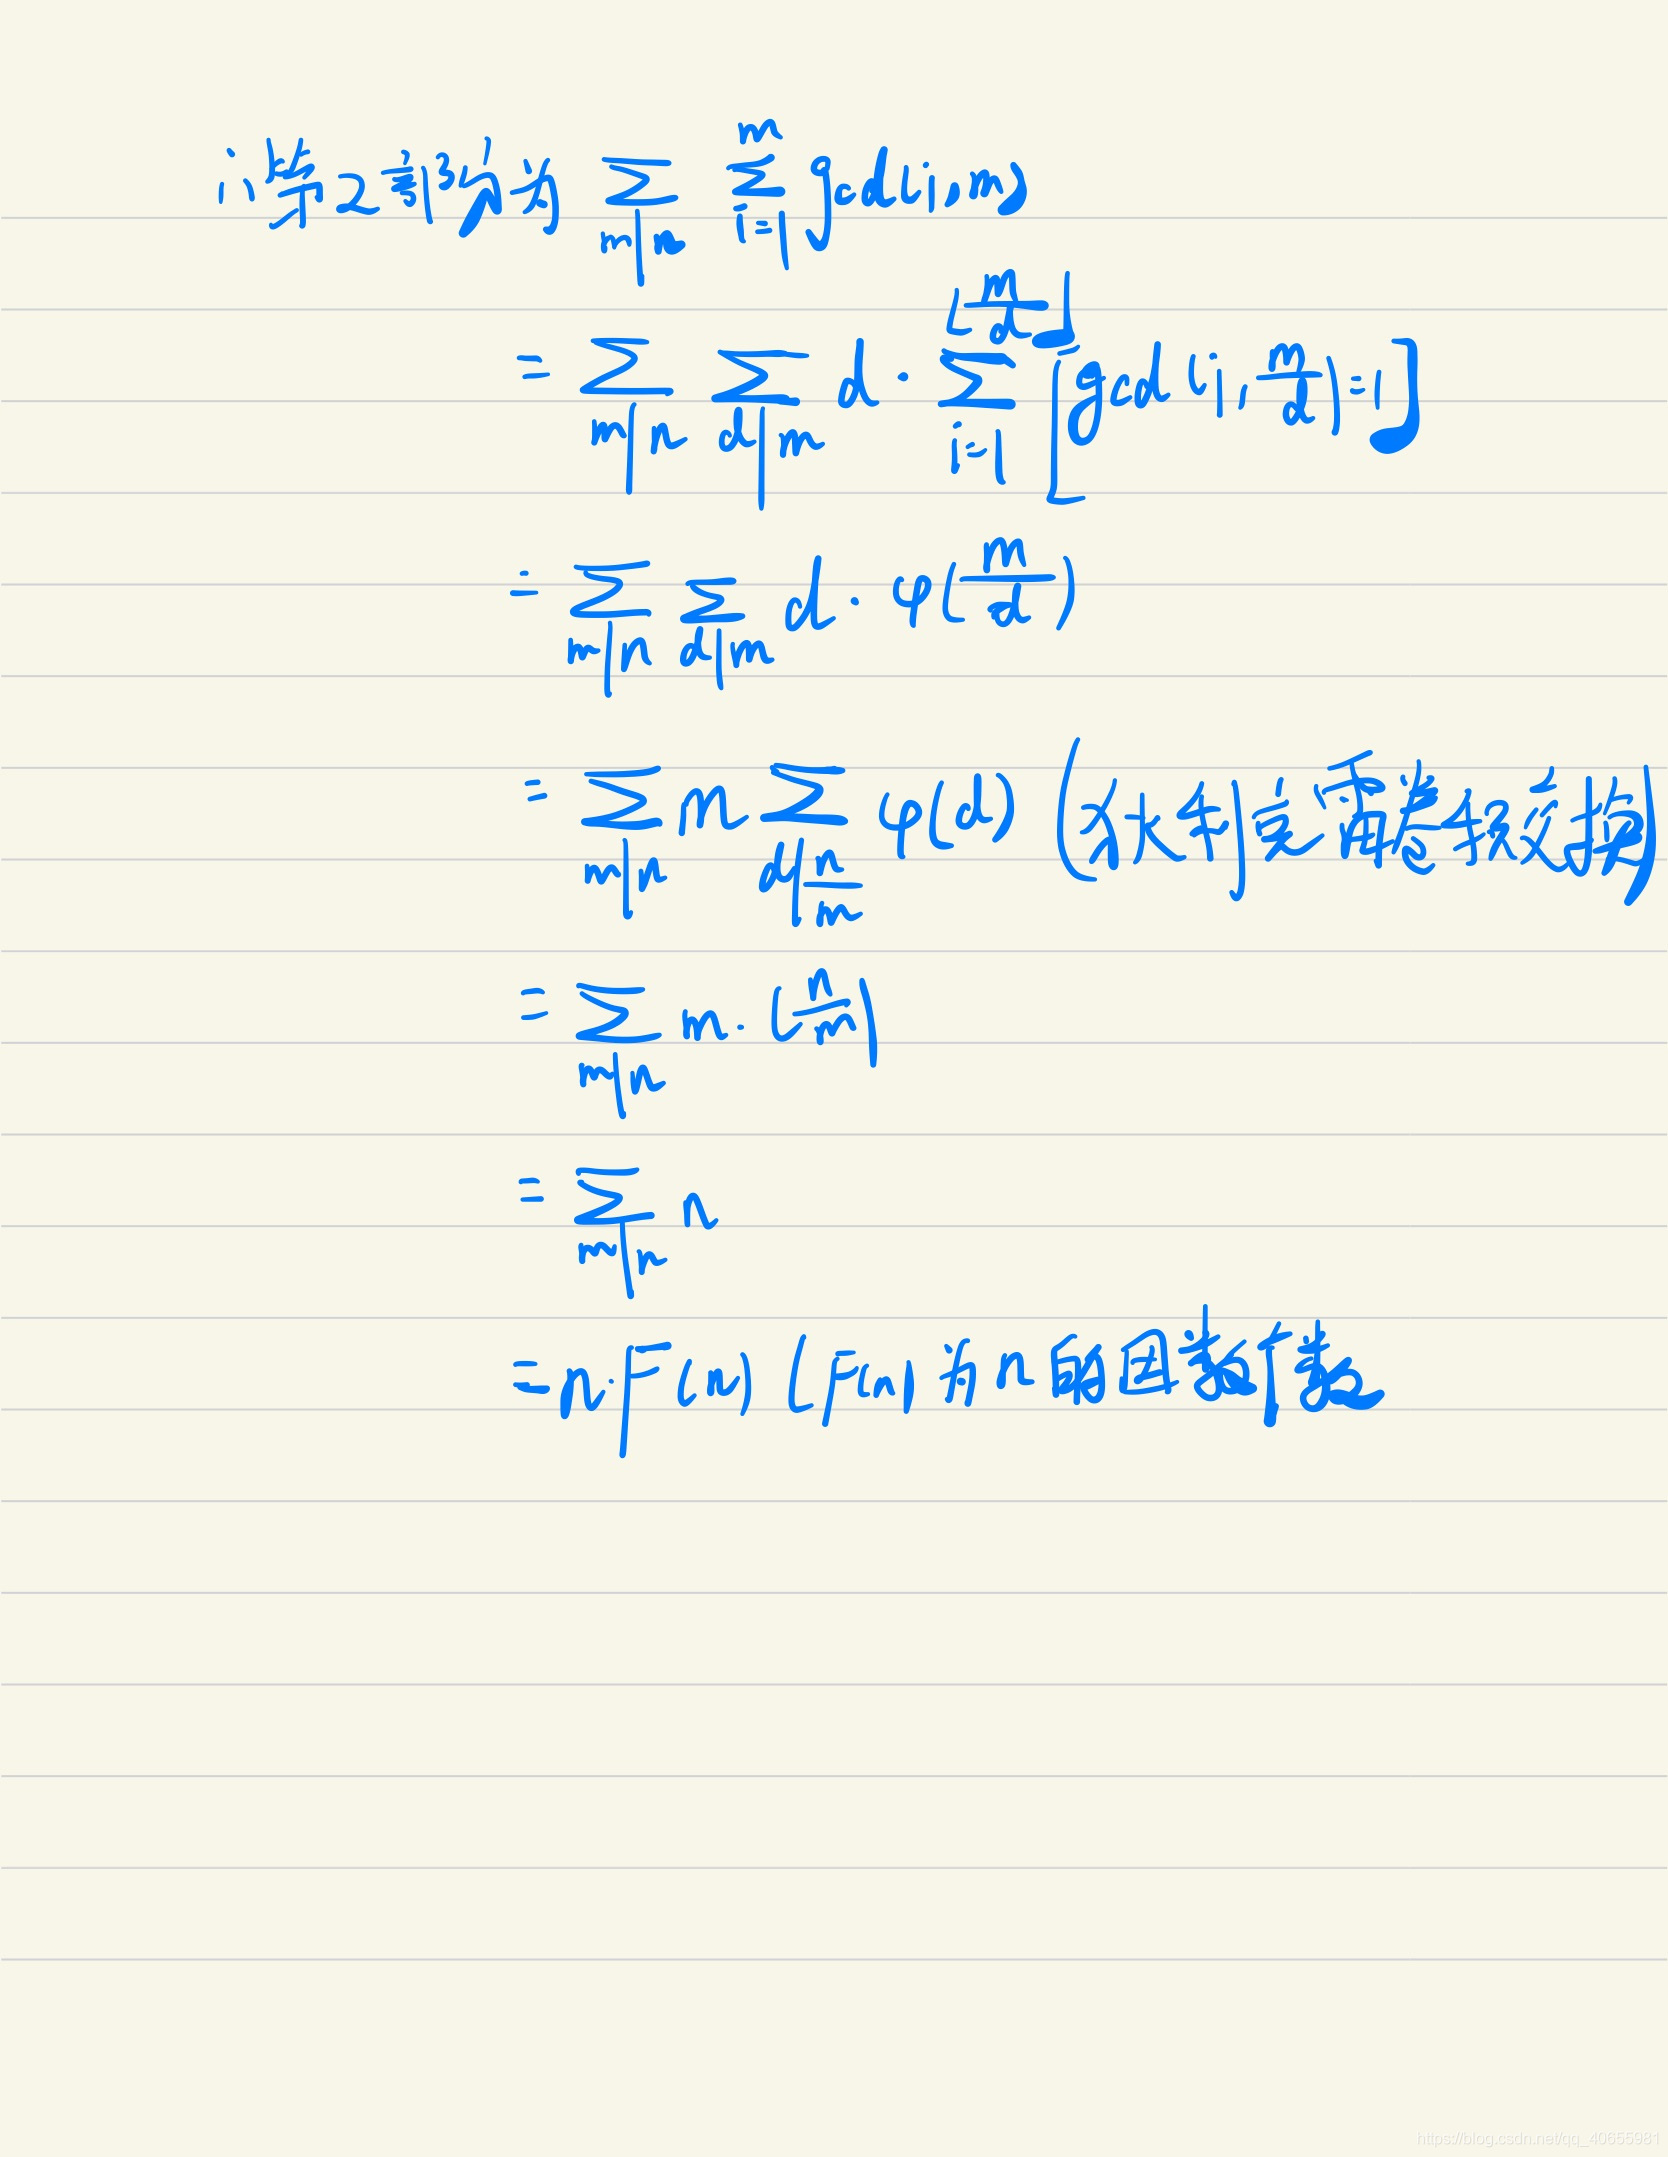 i、第2部分为 \sum_{m|n} \sum_{i=1}^{m} gcd(i,m)
= \sum_{m|n} \sum_{d|m} d · \sum_{i=1}^{⌊\frac{m}{d}⌋} [gcd(i,\frac{m}{d})=1]
= \sum_{m|n} \sum_{d|m} d · φ(\frac{m}{d})
= \sum_{m|n} m \sum_{d|\frac{n}{m}} φ(d) (狄利克雷卷积交换)
= \sum_{m|n} m · (\frac{n}{m})
= \sum_{m|n} n
= n·F(n) (F(n)为n的因数个数
https://blog.csdn.net/qq_40655981